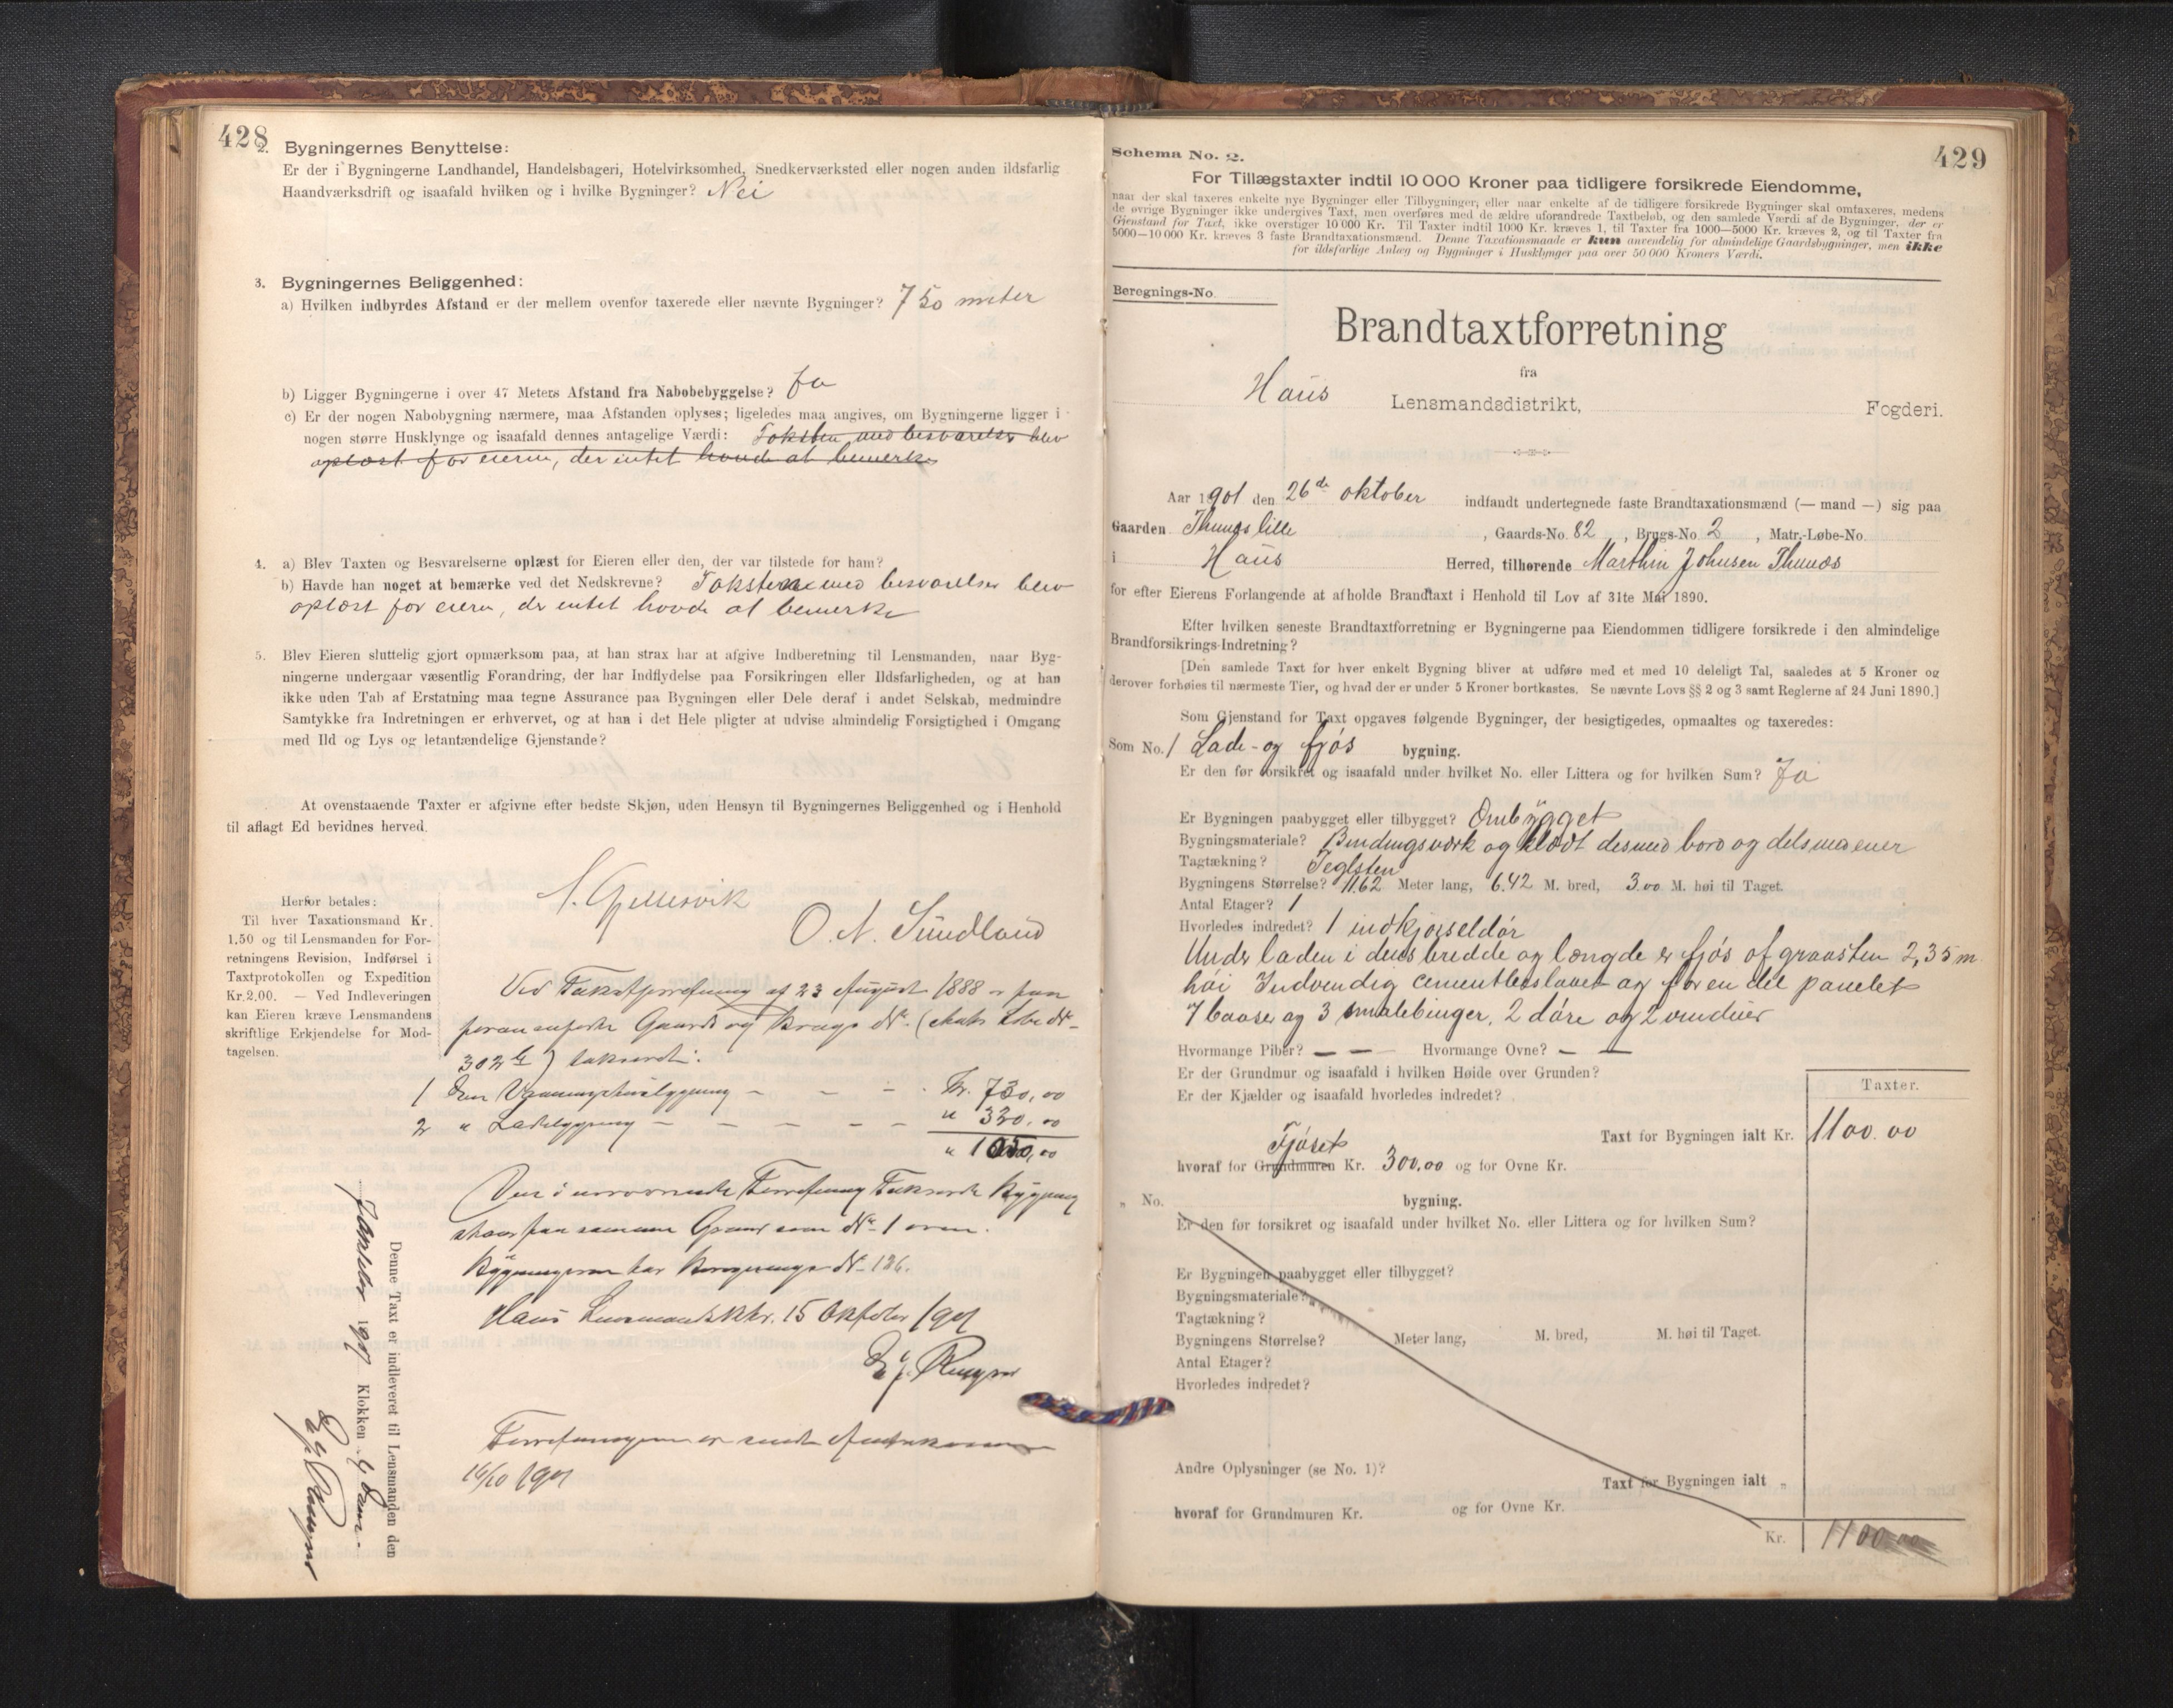 428
2. Bygningernes Benyttelse:
Er der i Bygningerne Landhandel, Handelsbageri, Hotelvirksomhed, Snedkerværksted eller nogen anden ildsfarlig
Haandværksdrift og isaafald hvilken og i hvilke Bygninger? Nei
3. Bygningernes Beliggenhed:
a) Hvilken indbyrdes Afstand er der mellem ovenfor taxerede eller nævnte Bygninger? 750 meter
b) Ligger Bygningerne i over 47 Meters Afstand fra Nabobebyggelse? Ja
c) Er der nogen Nabobygning nærmere, maa Afstanden oplyses; ligeledes maa angives, om Bygningerne ligger i
nogen større Husklynge og isaafald dennes antagelige Værdi: Toksten med besvarelse blev
oplæst for eieren, der intet havde at bemerke
4. a) Blev Taxten og Besvarelserne oplæst for Eieren eller den, der var tilstede for ham?
b) Havde han noget at bemærke ved det Nedskrevne? Toksten med besvarelse blev
oplæst for eieren, der intet havde at bemerke
5. Blev Eieren sluttelig gjort opmærksom paa, at han strax har at afgive Indberetning til Lensmanden, naar Byg-
ningerne undergaar væsentlig Forandring, der har Indflydelse paa Forsikringen eller Ildsfarligheden, og at han
ikke uden Tab af Erstatning maa tegne Assurance paa Bygningen eller Dele deraf i andet Selskab, medmindre
Samtykke fra Indretningen er erhvervet, og at han i det Hele pligter at udvise almindelig Forsigtighed i Omgang
med Ild og Lys og letantændelige Gjenstande?
At ovenstaaende Taxter er afgivne efter bedste Skjøn, uden Hensyn til Bygningernes Beliggenhed og i Henhold
til aflagt Ed bevidnes herved.
O. N. Sundland
Herfor betales:
Til hver Taxationsmand Kr.
1.50 og til Lensmanden for For-
retningens Revision, Indførsel i
Taxtprotokollen og Expedition
Kr. 2.00. — Ved Indleveringen
kan Eieren kræve Lensmandens
skriftlige Erkjendelse for Mod-
tagelsen.
Ved Takstforretning af 23 August 1888 er paa
foran anførte Gaards og Brugs No.
302 takseret:
1 Den Vaaningshusbygning – – – Kr. 730,00
2 " Ladebygning – – – – – " 320,00
" 1050,00
Den i nærværende Forretning Takserede Bygning
staar paa samme Grund som No 1 oven.
Bygningerne har Beregnings No 126.
Haus Lensmandsktr. 15 Oktober 1901
Forretningen er sendt
16/10 1901
Denne Taxt er indleveret til Lensmanden den
Oktober 1901 Klokken
429
Schema No. 2.
For Tillægstaxter indtil 10 000 Kroner paa tidligere forsikrede Eiendomme,
naar der skal taxeres enkelte nye Bygninger eller Tilbygninger, eller naar enkelte af de tidligere forsikrede Bygninger skal omtaxeres, medens
de øvrige Bygninger ikke undergives Taxt, men overføres med de ældre uforandrede Taxtbeløb, og den samlede Værdi af de Bygninger, der er
Gjenstand for Taxt, ikke overstiger 10 000 Kr. Til Taxter indtil 1000 Kr. kræves 1, til Taxter fra 1000—5000 Kr. kræves 2, og til Taxter fra
5000—10 000 Kr. kræves 3 faste Brandtaxationsmænd. Denne Taxationsmaade er kun anvendelig for almindelige Gaardsbygninger, men ikke
for ildsfarlige Anlæg og Bygninger i Husklynger paa over 50 000 Kroners Værdi.
Beregnings-No.
Brandtaxtforretning
fra
Haus Lensmandsdistrikt, Fogderi.
Aar 1901 den 26de oktober indfandt undertegnede faste Brandtaxationsmænd (— mand —) sig paa
Gaarden Thunes lille, Gaards-No. 82, Brugs-No. 2, Matr.-Løbe-No.
i Haus Herred, tilhørende Marthin Johnsen Thunæs
for efter Eierens Forlangende at afholde Brandtaxt i Henhold til Lov af 31te Mai 1890.
Efter hvilken seneste Brandtaxtforretning er Bygningerne paa Eiendommen tidligere forsikrede i den almindelige
Brandforsikrings-Indretning?
[Den samlede Taxt for hver enkelt Bygning bliver at udføre med et med 10 deleligt Tal, saaledes at 5 Kroner og
derover forhøies til nærmeste Tier, og hvad der er under 5 Kroner bortkastes. Se nævnte Lovs §§ 2 og 3 samt Reglerne af 24 Juni 1890.]
Som Gjenstand for Taxt opgaves følgende Bygninger, der besigtigedes, opmaaltes og taxeredes:
Som No. 1 Lade- og fjøs bygning.
Er den før forsikret og isaafald under hvilket No. eller Littera og for hvilken Sum? Ja
Er Bygningen paabygget eller tilbygget? Ombygget
Bygningsmateriale? Bindingsværk og klædt dels med bord og dels med ener
Tagtækning? Teglsten
Bygningens Størrelse? 11.62 Meter lang, 6.42 M. bred, 3.00 M. høi til Taget.
Antal Etager? 1
Hvorledes indredet? 1 indkjørseldør
Under laden i dens bredde og længde er fjøs af graasten 2,35 m.
høi Indvendig cementbeslaaet og for en del panelet
7 baaser og 3 smalebinger, 2 døre og 2 vinduer
Hvormange Piber? — — Hvormange Ovne? — —
Er der Grundmur og isaafald i hvilken Høide over Grunden?
Er der Kjælder og isaafald hvorledes indredet?
Taxter.
Taxt for Bygningen ialt Kr. 1100.00
Fjøset
hvoraf for Grundmuren Kr. 300.00 og for Ovne Kr.
" No. bygning.
Er den før forsikret og isaafald under hvilket No. eller Littera og for hvilken Sum?
Er Bygningen paabygget eller tilbygget?
Bygningsmateriale?
Tagtækning?
Bygningens Størrelse? Meter lang, M. bred, M. høi til Taget.
Antal Etager?
Hvorledes indredet?
Andre Oplysninger (se No. 1)?
Taxt for Bygningen ialt "
hvoraf for Grundmuren Kr. og for Ovne Kr.
Kr. 1100.00